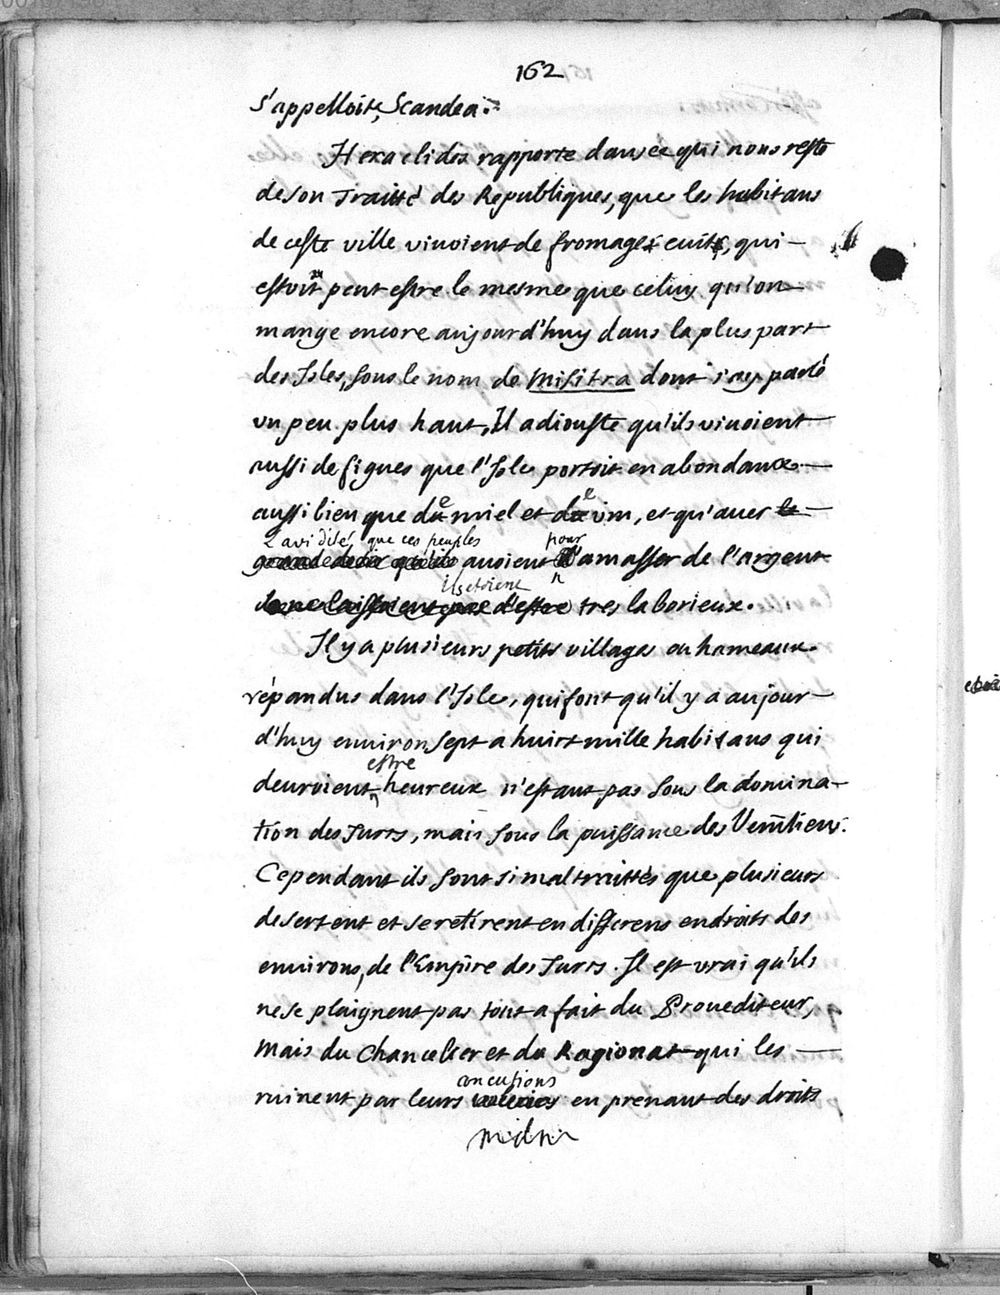 162
s'appelloit, Scandea.
Heraclides rapporte dans ce qui nous reste
de son Traitté des Republiques, que les habitans
de ceste ville viuoient de fromages cuits, qui
estoit peut estre le mesme que celuy qu'on
mange encore aujourd'huy dans la plus part
des Isles, sous le nom de Misitra dont i'ay parlé
vn peu plus haut, Il adiouste qu'ils viuoient
aussi de figues que l'Isle portoit en abondance
aussi bien que de miel et de vin, et qu'auec la
l'avidité, que ces peuples pour
grand desir qu'ils auoient d'amasser de l'argent
ils etoient
ne laissoient pas d'estre tres laborieux.
Il y a plusieurs petits villages ou hameaux
répandus dans l'Isle, qui font qu'il y a aujour
d'huy environ sept a huict mille habitans qui
estre
deuroient heureux n'estant pas sous la domina-
tion des Turcs, mais sous la puissance des Venitiens.
Cependant ils sont si mal traittés que plusieurs
desertent et se retirent en differens endroits des
environs, de l'Empire des Turcs. Il est vrai qu'ils
ne se plaignent pas tout a fait du Prouediteur,
Mais du Chancelier et du Ragionat qui les
concutions
ruinent par leurs voleries en prenant des droits